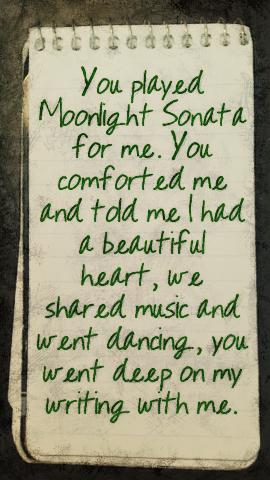 You played
Moonlight Sonata
for me. You
comforted me
and told me I had
a beautiful
heart, we
shared music and
went dancing, you
went deep on my
writing with me.